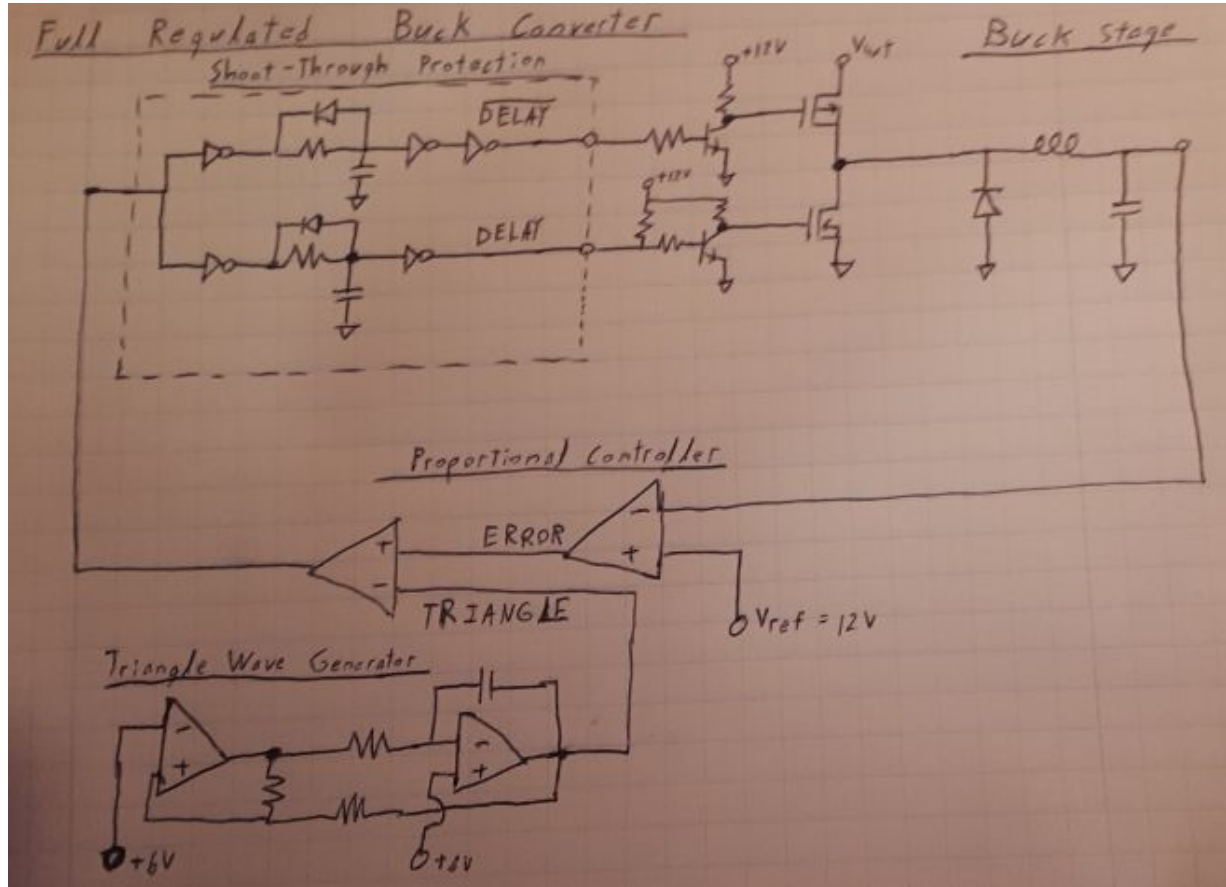 Full Regulated Buck Converter
Buck Stage
Shoot-Through Protection
+12V
DELAY
+12V
DELAY
Proportional Controller
ERROR
TRIANGLE
Vref = 12V
Triangle Wave Generator
+6V